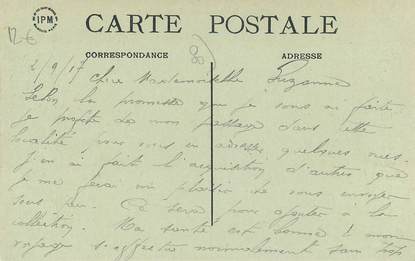 IPM
12€
80
CARTE POSTALE
CORRESPONDANCE
ADRESSE
2/9/17 Chère Mademoiselle Suzanne
Selon la promesse que je vous ai faite
je profite de mon passage dans cette
localité pour vous en adresser quelques vues.
J'en ai fait l'acquisition d'autres que
je me ferai un plaisir de vous envoyer
sous peu. Ce sera pour ajouter à la
collection. Ma santé est bonne & mon
voyage s'effectue normalement sans trop